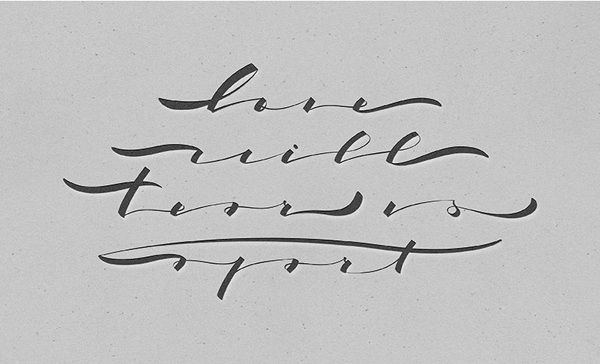 love
will
tear us
apart